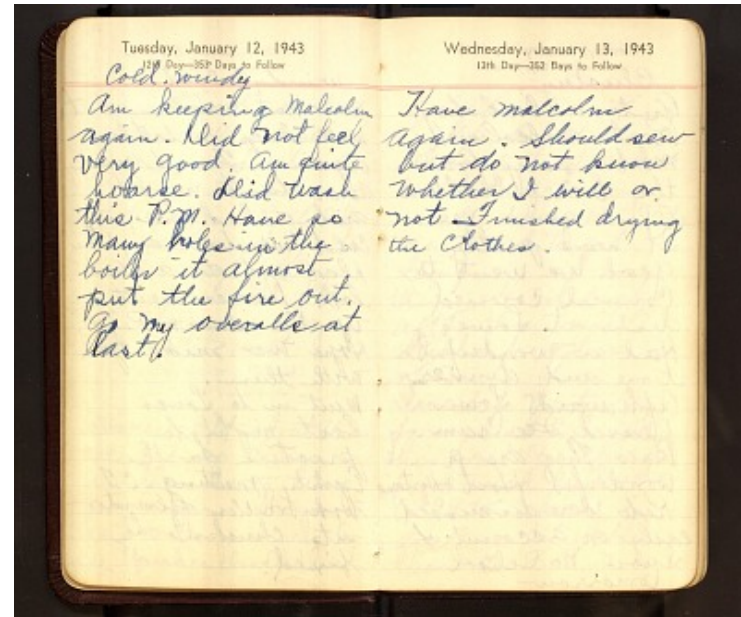 Tuesday, January 12, 1943
12th Day—353 Days to Follow
Cold. windy
Am keeping Malcolm
again. Did not feel
very good. Am quite
hoarse. Did wash
this P.M. Have so
many holes in the
boiler it almost
put the fire out.
my overalls at
last.
Wednesday, January 13, 1943
13th Day—352 Days to Follow
Have malcolm
again. Should sew
but do not know
whether I will or
not - Finished drying
the Clothes.